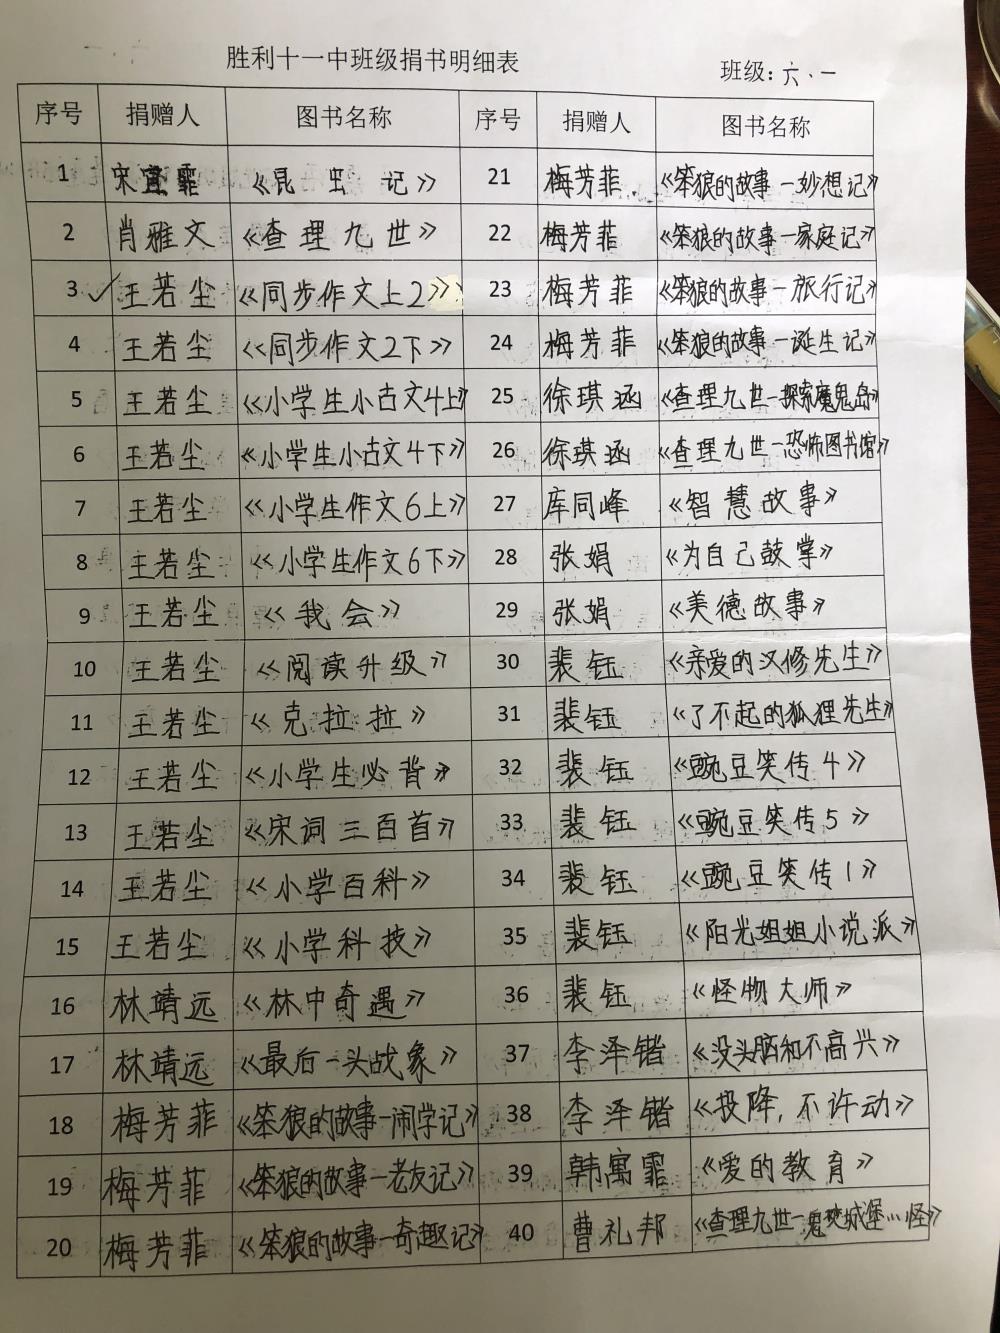 胜利十一中班级捐书明细表
班级：六.一
序号 捐赠人 图书名称 序号 捐赠人 图书名称
1 宋宜霏 《昆虫记》 21 梅芳菲 《笨狼的故事一妙想记》
2 肖雅文 《查理九世》 22 梅芳菲 《笨狼的故事一家庭记》
3 ✓ 王若尘 《同步作文上2》 23 梅芳菲 《笨狼的故事一旅行记》
4 王若尘 《同步作文2下》 24 梅芳菲 《笨狼的故事一诞生记》
5 王若尘 《小学生小古文4上》 25 徐琪涵 《查理九世一探索魔鬼岛》
6 王若尘 《小学生小古文4下》 26 徐琪涵 《查理九世一恐怖图书馆》
7 王若尘 《小学生作文6上》 27 库同峰 《智慧故事》
8 王若尘 《小学生作文6下》 28 张娟 《为自己鼓掌》
9 王若尘 《我会》 29 张娟 《美德故事》
10 王若尘 《阅读升级》 30 裴钰 《亲爱的汉修先生》
11 王若尘 《克拉拉》 31 裴钰 《了不起的狐狸先生》
12 王若尘 《小学生必背》 32 裴钰 《豌豆笑传4》
13 王若尘 《宋词三百首》 33 裴钰 《豌豆笑传5》
14 王若尘 《小学百科》 34 裴钰 《豌豆笑传1》
15 王若尘 《小学科技》 35 裴钰 《阳光姐姐小说派》
16 林靖远 《林中奇遇》 36 裴钰 《怪物大师》
17 林靖远 《最后一头战象》 37 李泽锴 《没头脑和不高兴》
18 梅芳菲 《笨狼的故事一闹学记》 38 李泽锴 《投降，不许动》
19 梅芳菲 《笨狼的故事一老友记》 39 韩寓霏 《爱的教育》
20 梅芳菲 《笨狼的故事一奇趣记》 40 曹礼邦 《查理九世一鬼城堡小怪》